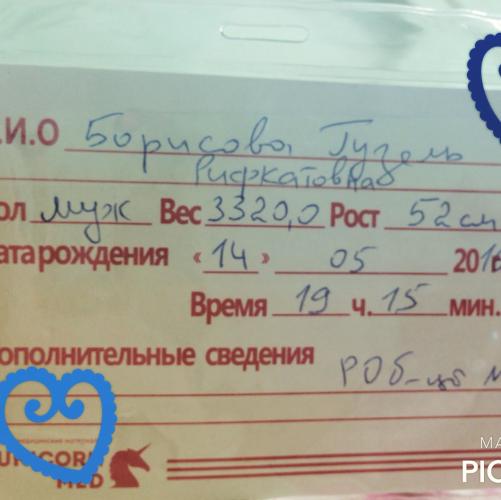 .И.О Борисова Гузель
Рифкатовна
ол муж Вес 3320,0 Рост 52 см
ата рождения « 14 » 05 2016
Время 19 ч. 15 мин.
ополнительные сведения РОб-ц
медицинские материалы
UNICORN
MED
MA
PIC